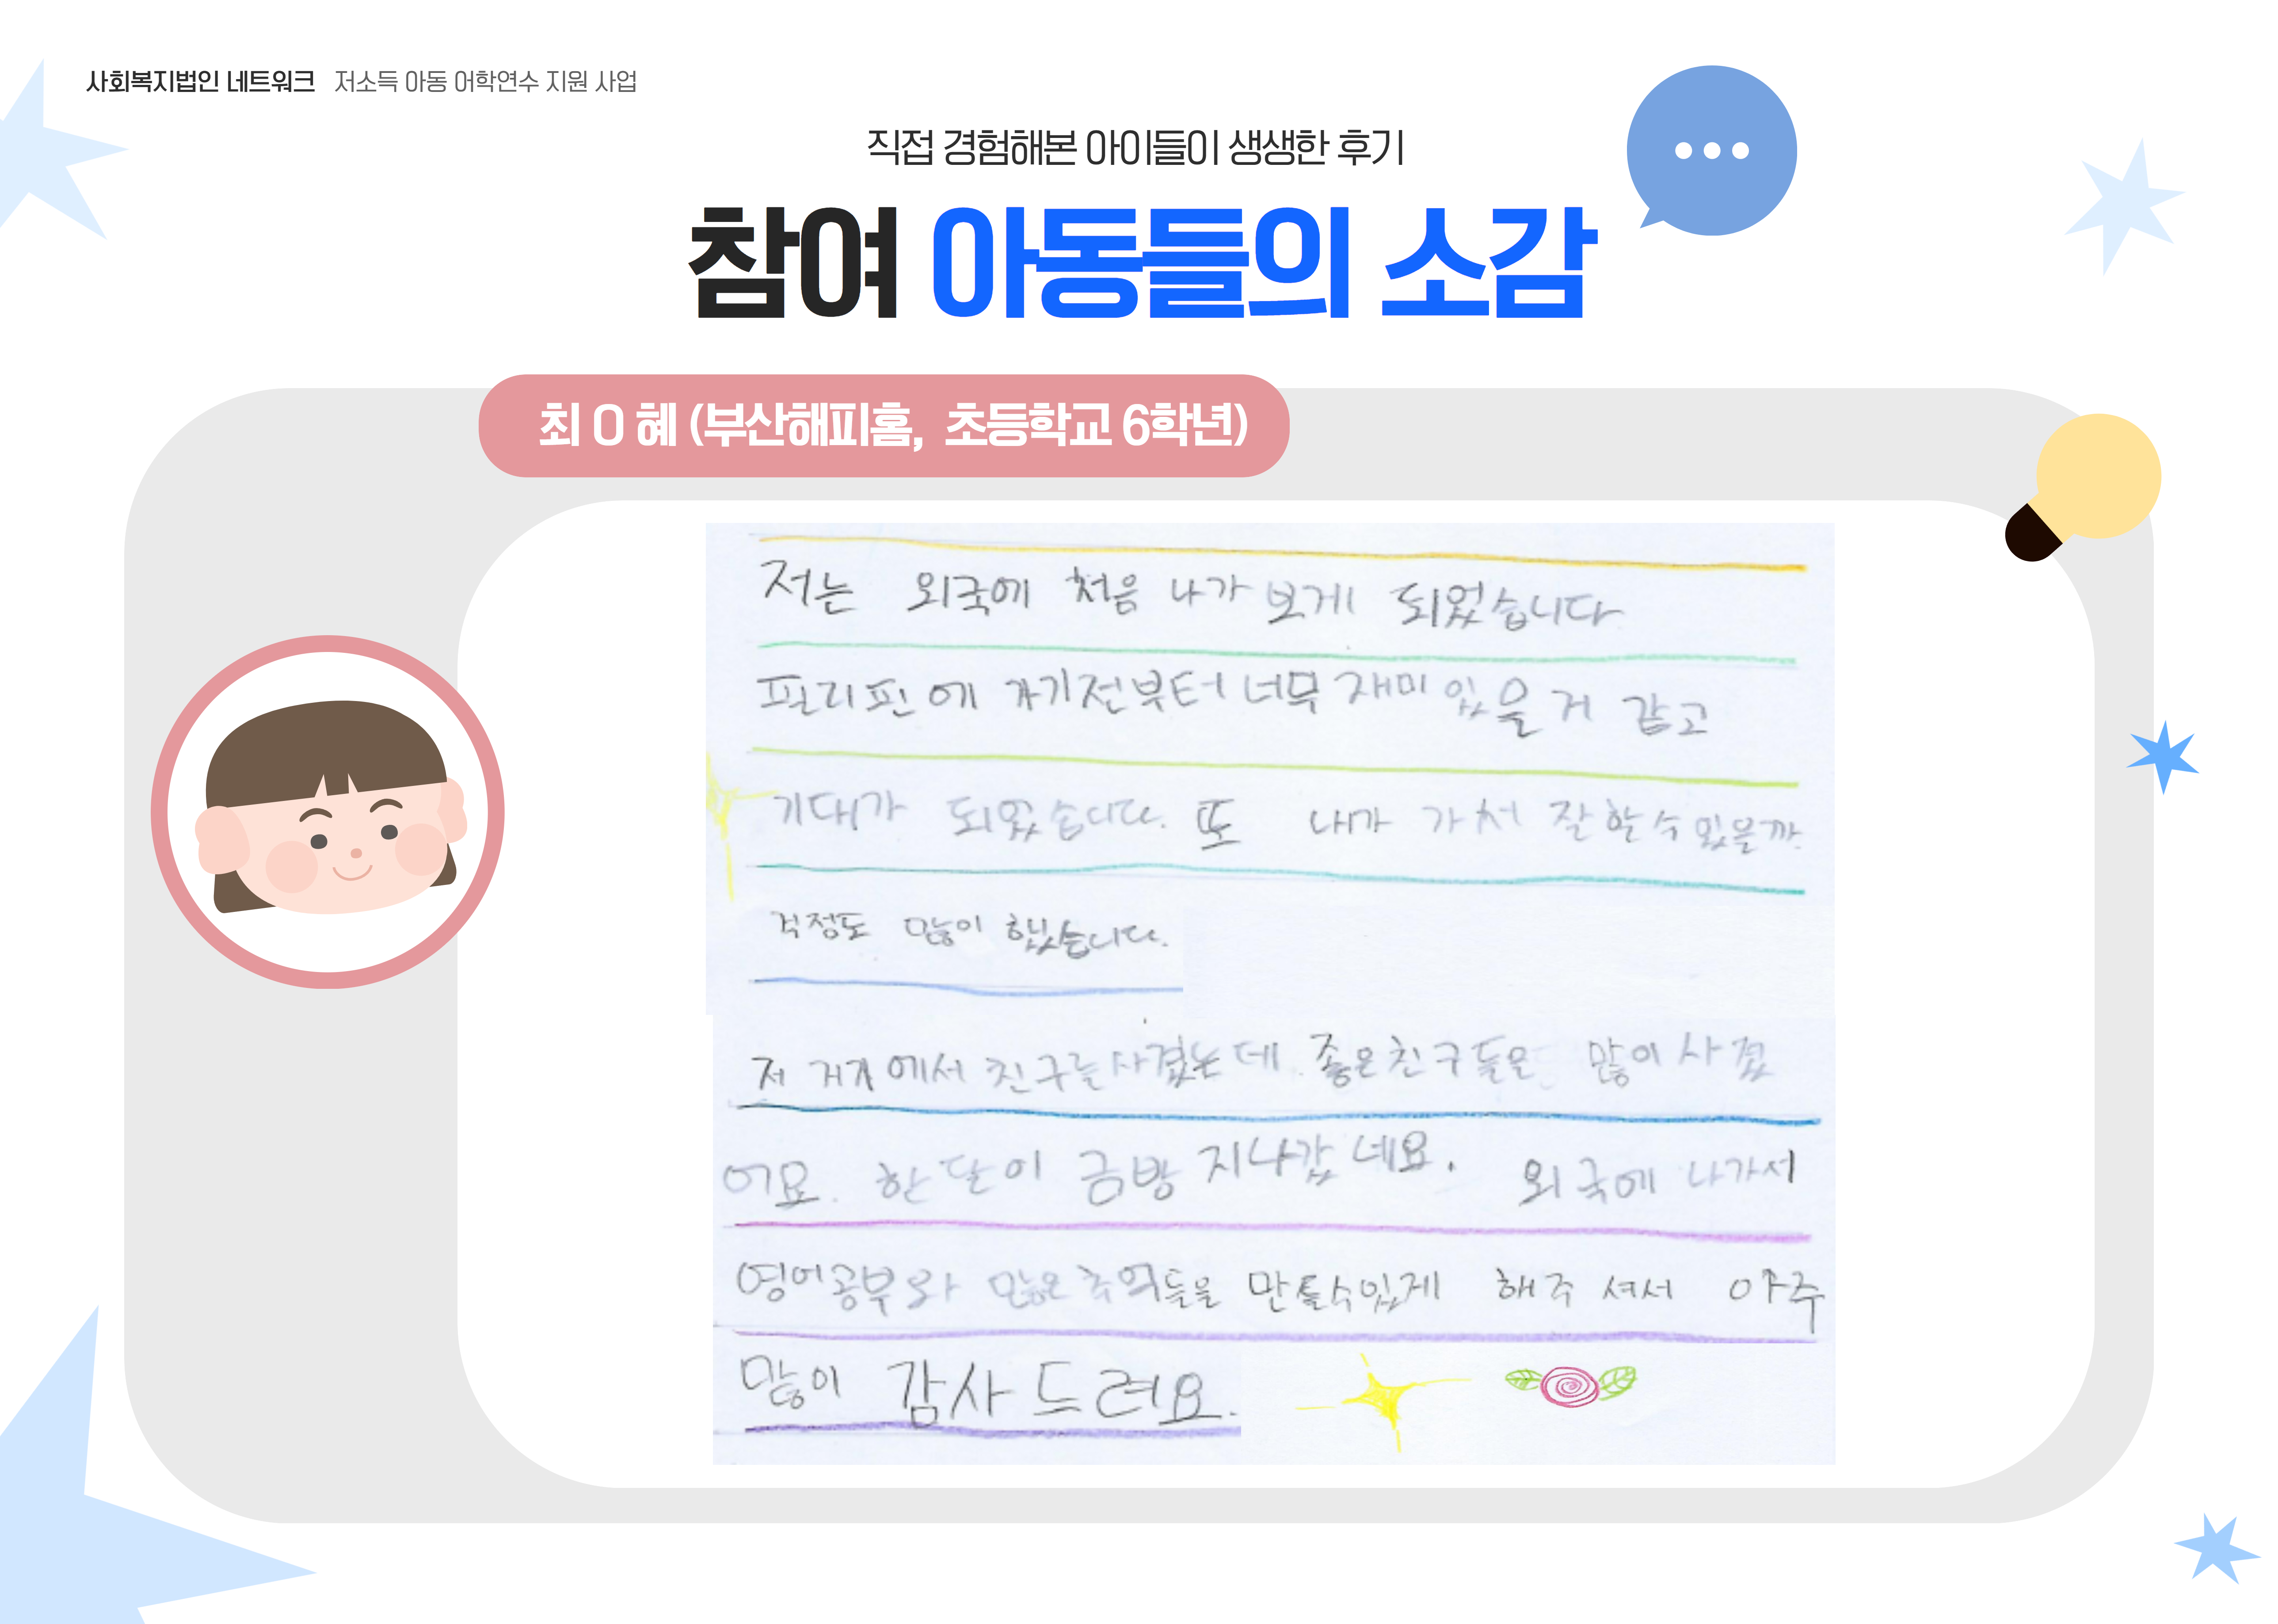 사회복지법인 네트워크 저소득 아동 어학연수 지원 사업
직접 경험해본 아이들이 생생한 후기
참여 아동들의 소감
최 O 혜 (부산해피홈, 초등학교 6학년)
저는 외국에 처음 나가 보게 되었습니다
필리핀에 가기전부터 너무 재미있을 거 같고
기대가 되었습니다. 또 내가 가서 잘 할 수 있을까
걱정도 많이 했습니다.
저 거기에서 친구를 사겼는데 좋은친구들은 많이 사겼
어요. 한 달이 금방 지나갔네요. 외국에 나가서
영어공부와 많은 추억들을 만들수있게 해주셔서 아주
많이 감사드려요.